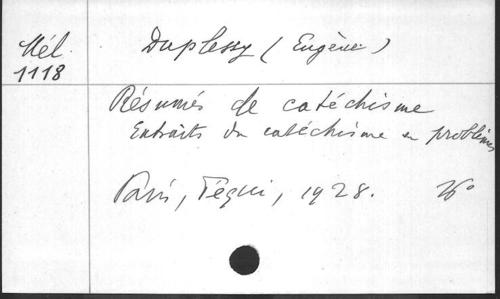 Mél.
1118
Duplessy (Eugène)
Résumés de catéchisme
Extraits du catéchisme en problèmes
Paris, Téqui, 1928.